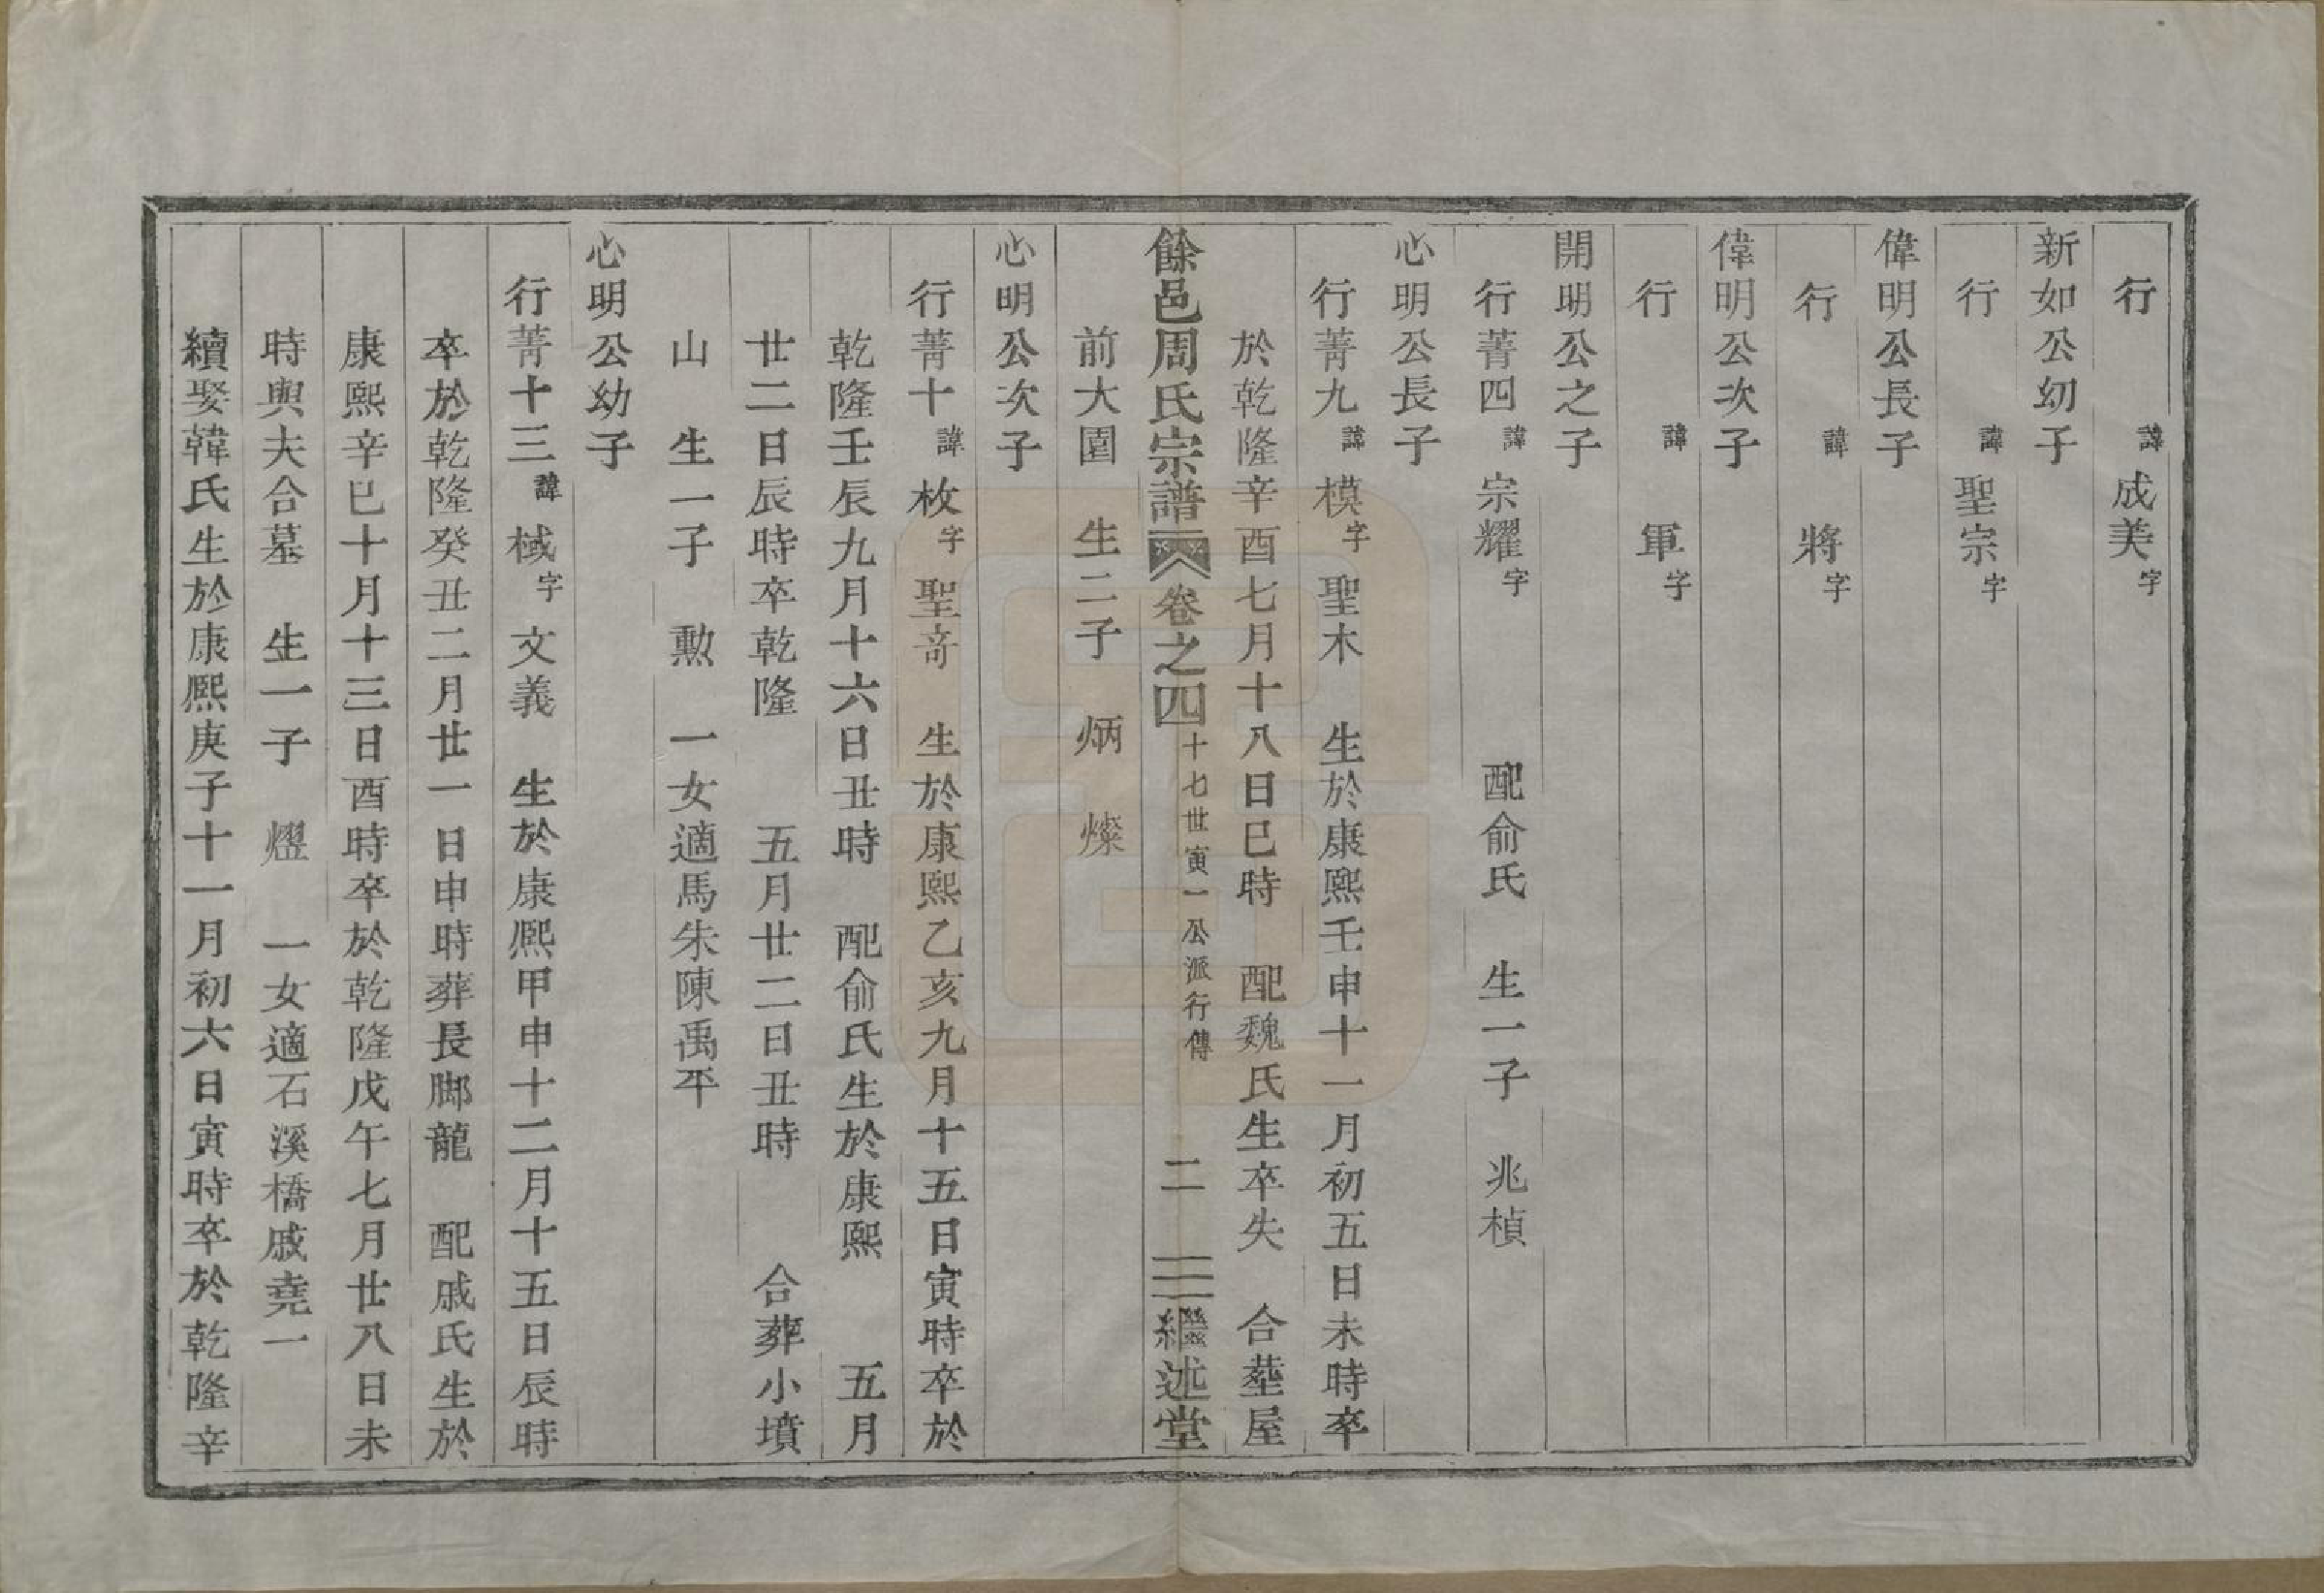 行 諱成美字
新如公幼子
行 諱聖宗字
偉明公長子
行 諱將字
偉明公次子
行 諱軍字
開明公之子
行菁四諱宗耀字 配俞氏 生一子 兆楨
心明公長子
行菁九諱模字聖木 生於康熙壬申十一月初五日未時卒
於乾隆辛酉七月十八日巳時 配魏氏生卒失 合塟屋
餘邑周氏宗譜 卷之四 十七世寅一公派行傳 二 繼述堂
前大園 生二子 炳 燦
心明公次子
行菁十諱枚字聖竒 生於康熙乙亥九月十五日寅時卒於
乾隆壬辰九月十六日丑時 配俞氏生於康熙 五月
廿二日辰時卒乾隆 五月廿二日丑時 合葬小墳
山 生一子 勲 一女適馬朱陳禹平
心明公幼子
行菁十三諱棫字文義 生於康熙甲申十二月十五日辰時
卒於乾隆癸丑二月廿一日申時葬長脚龍 配戚氏生於
康熙辛巳十月十三日酉時卒於乾隆戊午七月廿八日未
時與夫合墓 生一子 燿 一女適石溪橋戚堯一
續娶韓氏生於康熙庚子十一月初六日寅時卒於乾隆辛